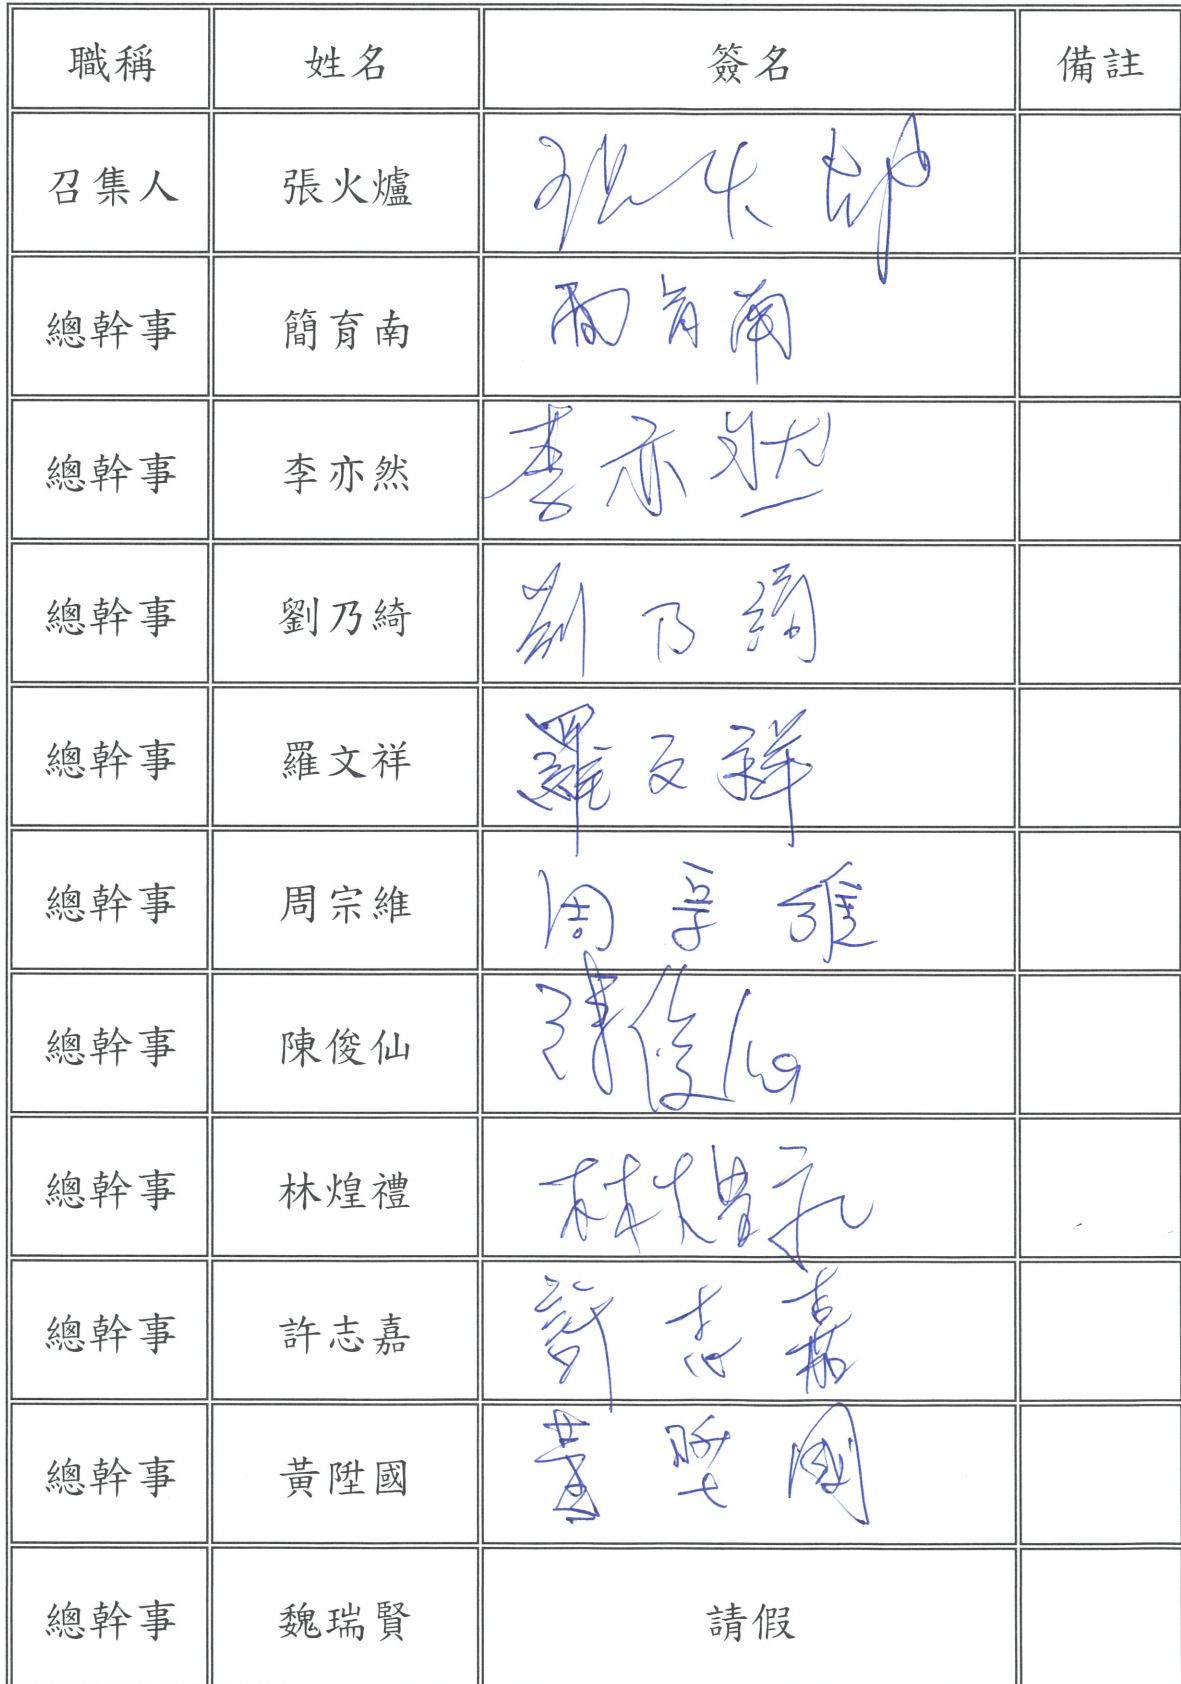 職稱 姓名 簽名 備註
召集人 張火爐 張火爐
總幹事 簡育南 簡育南
總幹事 李亦然 李亦然
總幹事 劉乃綺 劉乃綺
總幹事 羅文祥 羅文祥
總幹事 周宗維 周宗維
總幹事 陳俊仙 陳俊仙
總幹事 林煌禮 林煌禮
總幹事 許志嘉 許志嘉
總幹事 黃陞國 黃陞國
總幹事 魏瑞賢 請假